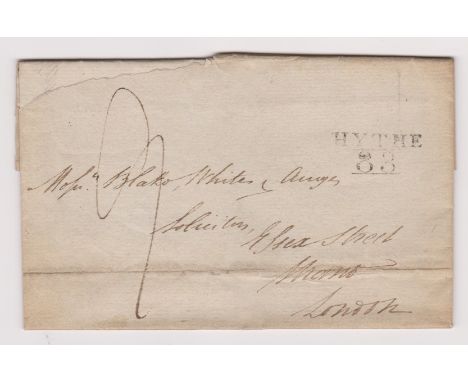 HYTHE
83
9
Messrs Blake, White & Auge
Solicitors,
Essex Street
Strand
London